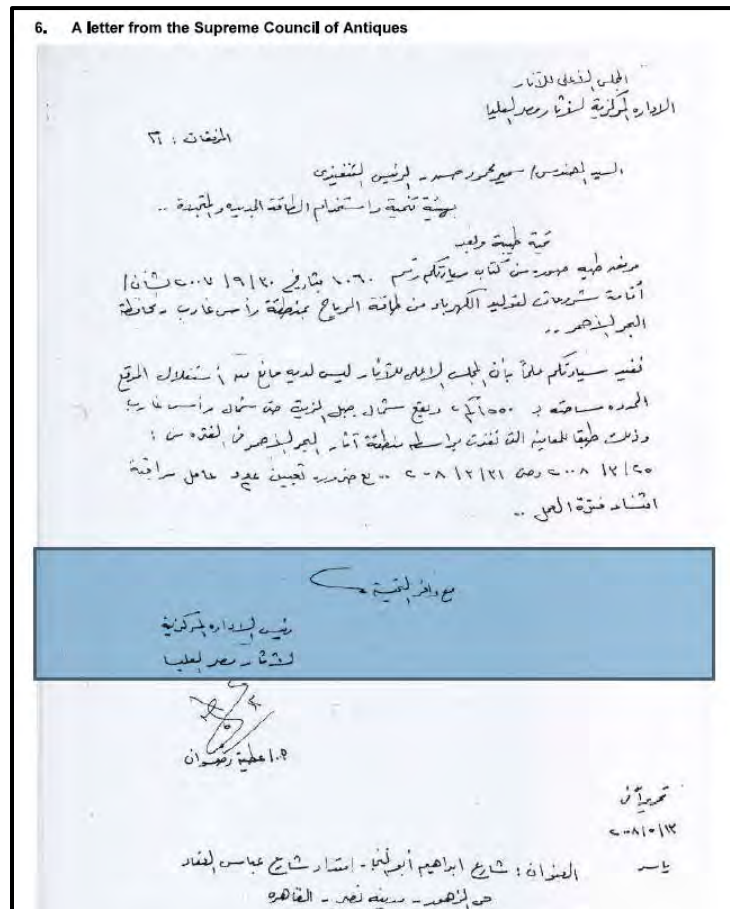 6. A letter from the Supreme Council of Antiques
المجلس الأعلى للآثار
الإدارة المركزية لآثار مصر العليا
المرفقات : ٢١
السيد المهندس/ سمير محمود حسن - الرئيس التنفيذى
بهيئة تنمية واستخدام الطاقة الجديدة والمتجددة ..
تحية طيبة وبعد
مرفقه طيه صورة من كتاب سيادتكم رقم ١٠٦٠ بتاريخ ٢٠٠٧/٩/٣٠ بشأن/
إقامة مشروعات لتوليد الكهرباء من طاقة الرياح بمنطقة رأس غارب بمحافظة
البحر الأحمر ..
نفيد سيادتكم علماً بأن المجلس الأعلى للآثار ليس لديه مانع من استغلال الموقع
المحدد مساحته ويقع شمال جبل الزيت حتى شمال رأس غارب
وذلك طبقا للمعاينة التى نفذت بواسطة منطقة آثار البحر الأحمر فى الفترة من :
٢٠٠٨/٣/٢٥ وحتى ٢٠٠٨/٣/٣١ .. مع ضرورة تعيين عدد عامل مراقبة
أثناء فترة العمل ..
مع وافر التحية
رئيس الإدارة المركزية
لآثار مصر العليا
عطية رضوان
تحريرا فى
٢٠٠٨/٥/١٣
ياسر
العنوان : شارع ابراهيم أبو النجا - امتداد شارع عباس العقاد
حى الزهور - مدينة نصر - القاهره